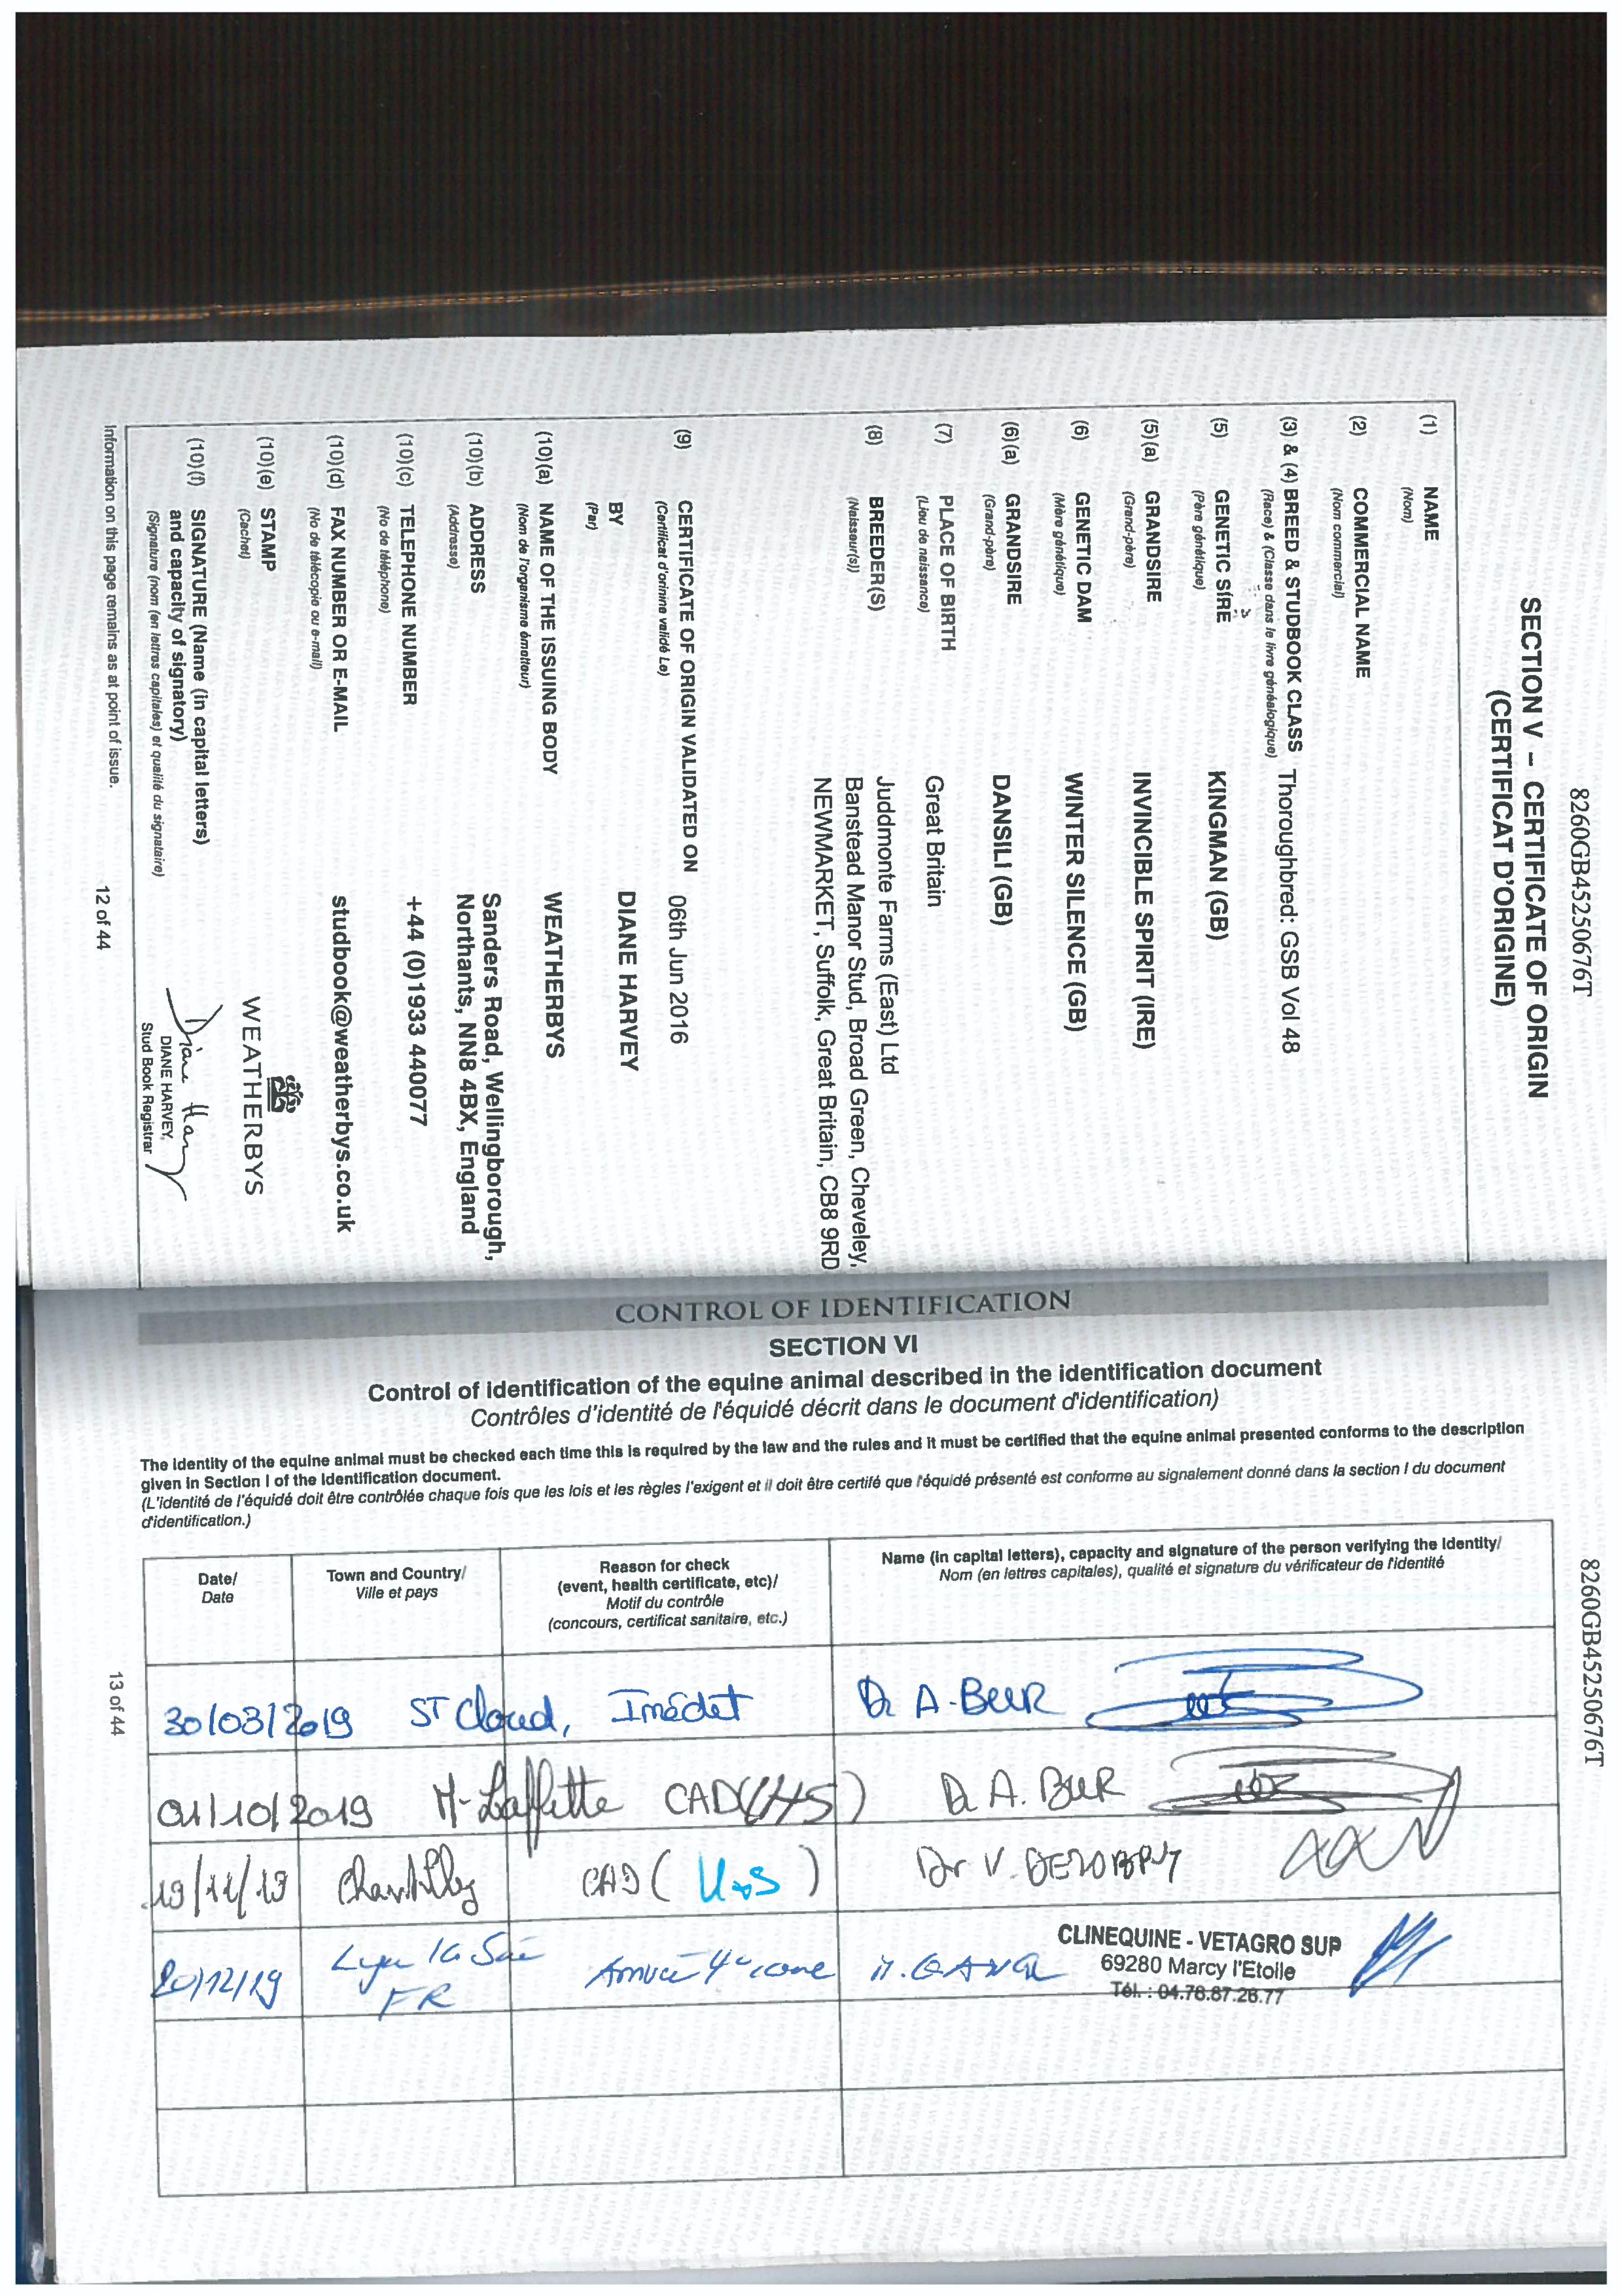 8260GB45250676T
SECTION V – CERTIFICATE OF ORIGIN
(CERTIFICAT D'ORIGINE)
(1) NAME
(Nom)
(2) COMMERCIAL NAME
(Nom commercial)
(3) & (4) BREED & STUDBOOK CLASS Thoroughbred: GSB Vol 48
(Race) & (Classe dans le livre généalogique)
(5) GENETIC SIRE KINGMAN (GB)
(Père génétique)
(5)(a) GRANDSIRE INVINCIBLE SPIRIT (IRE)
(Grand-père)
(6) GENETIC DAM WINTER SILENCE (GB)
(Mère génétique)
(6)(a) GRANDSIRE DANSILI (GB)
(Grand-père)
(7) PLACE OF BIRTH Great Britain
(Lieu de naissance)
(8) BREEDER(S) Juddmonte Farms (East) Ltd
(Naisseur(s)) Banstead Manor Stud, Broad Green, Cheveley,
NEWMARKET, Suffolk, Great Britain, CB8 9RD
(9) CERTIFICATE OF ORIGIN VALIDATED ON 06th Jun 2016
(Certificat d'orinine validé Le)
BY DIANE HARVEY
(Par)
(10)(a) NAME OF THE ISSUING BODY WEATHERBYS
(Nom de l'organisme émetteur)
(10)(b) ADDRESS Sanders Road, Wellingborough,
(Addresse) Northants, NN8 4BX, England
(10)(c) TELEPHONE NUMBER +44 (0)1933 440077
(No de téléphone)
(10)(d) FAX NUMBER OR E-MAIL studbook@weatherbys.co.uk
(No de télécopie ou e-mail)
(10)(e) STAMP WEATHERBYS
(Cachet)
(10)(f) SIGNATURE (Name (in capital letters)
and capacity of signatory)
(Signature (nom (en lettres capitales) et qualité du signataire)
DIANE HARVEY,
Stud Book Registrar
Information on this page remains as at point of issue.
12 of 44
CONTROL OF IDENTIFICATION
SECTION VI
Control of identification of the equine animal described in the identification document
Contrôles d'identité de l'équidé décrit dans le document d'identification)
The identity of the equine animal must be checked each time this is required by the law and the rules and it must be certified that the equine animal presented conforms to the description
given in Section I of the identification document.
(L'identité de l'équidé doit être contrôlée chaque fois que les lois et les règles l'exigent et il doit être certifé que l'équidé présenté est conforme au signalement donné dans la section I du document
d'identification.)
8260GB45250676T
Date/
Date
Town and Country/
Ville et pays
Reason for check
(event, health certificate, etc)/
Motif du contrôle
(concours, certificat sanitaire, etc.)
Name (in capital letters), capacity and signature of the person verifying the identity/
Nom (en lettres capitales), qualité et signature du vérificateur de l'identité
30/03/2019 ST Cloud, Inédet Dr A-BEUR
01/10/2019 M-Laffitte CAD (HS) Dr A. BEUR
19/11/19 Chantilly CAD ( ) Dr V.
20/12/19 FR
CLINEQUINE - VETAGRO SUP
69280 Marcy l'Etoile
Tél. : 04.78.87.26.77
13 of 44